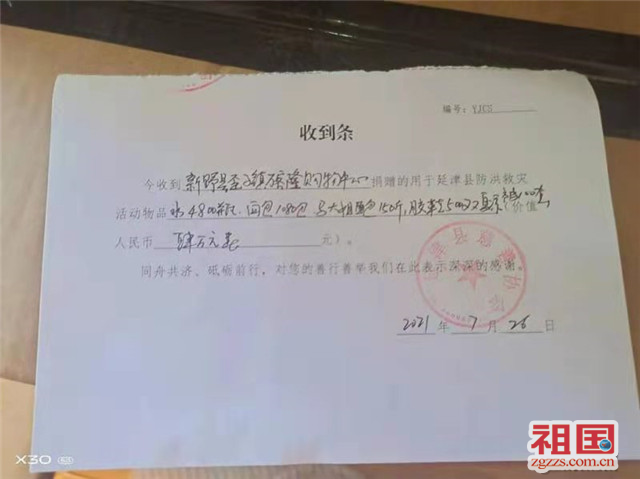 编号：YJCS
收到条
今收到 新野县歪子镇 隆购物中心 捐赠的用于延津县防洪救灾
活动物品 水4800瓶、面包1080包、马大姐面包150斤，胶鞋500双 （价值
人民币 肆万元整 元）。
同舟共济、砥砺前行，对您的善行善举我们在此表示深深的感谢。
2021 年 7 月 26 日
X30
祖国
zgzzs.com.cn